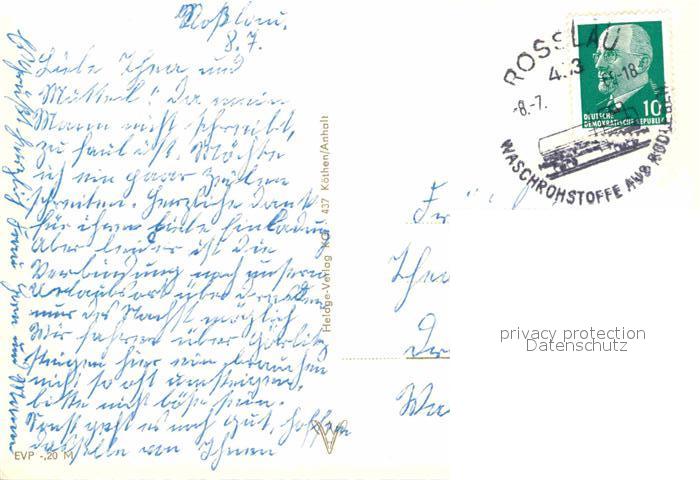 Roßlau.
8.7.
Liebe Thea und
Muttel! Da mein
Mann nicht schreibt,
zu faul ist. Möchte
ich ein paar Zeilen
schreiben. Herzliche Dank
für ihren liebe Einladung
Aber leider ist die
Verbindung nach unseren
Urlaubsort über Dresden
nur des Nachts möglich
Wir fahren über Görlitz
steigen hier ein, brauchen
nicht so oft umsteigen,
bitte nicht böse sein.
Sonst geht es noch gut, hoffen
dasselbe von Ihnen
Es grüßt herzlich
EVP -,20 M
Heldge-Verlag KG 437 Köthen/Anhalt
ROSSLAU
453
-8.-7.
-18
WASCHROHSTOFFE AUS RODLEBEN
DEUTSCHE
DEMOKRATISCHE REPUBLIK
10
Fr
Thea
Dr
privacy protection
Datenschutz